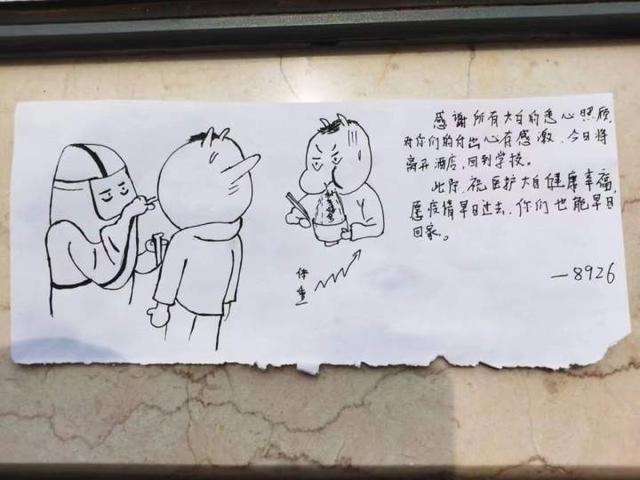 感谢所有大白的悉心照顾,
对你们的付出心有感激,今日将
离开酒店,回到学校。
此际,祝医护大白健康幸福,
愿疫情早日过去,你们也能早日
回家。
—8926
体重